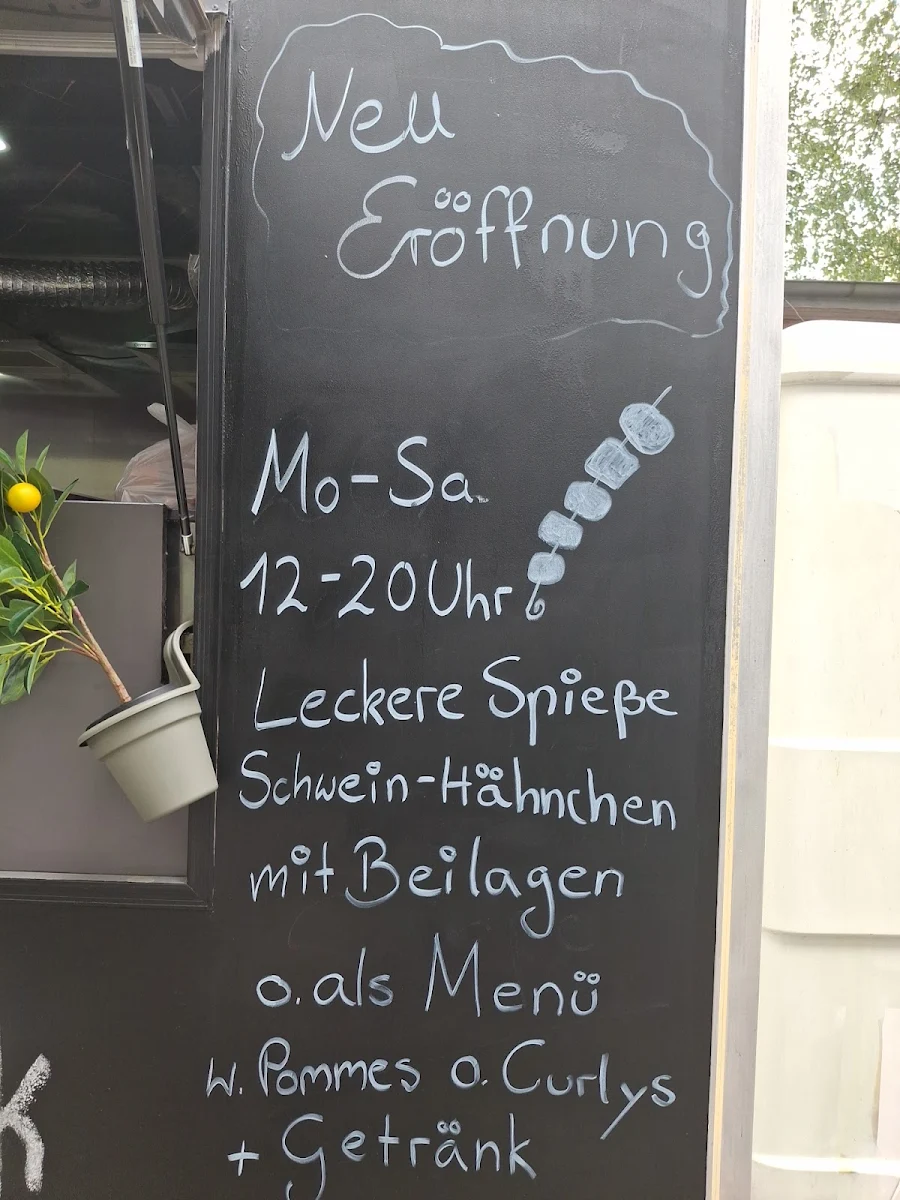 Neu
Eröffnung
Mo-Sa.
12-20 Uhr
Leckere Spieße
Schwein-Hähnchen
mit Beilagen
o. als Menü
w. Pommes o. Curlys
+ Getränk
k